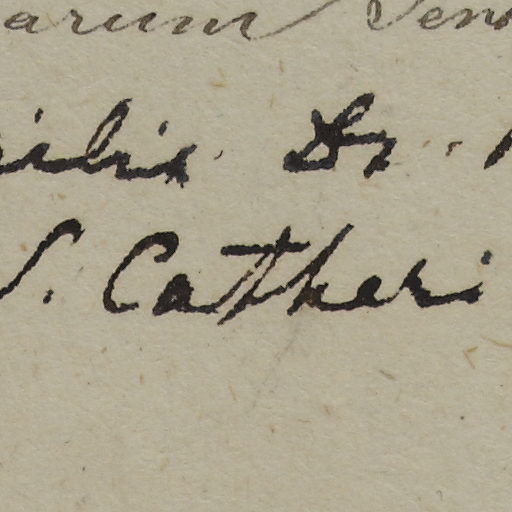 arum Sen
ilis Dr.
S. Catheri